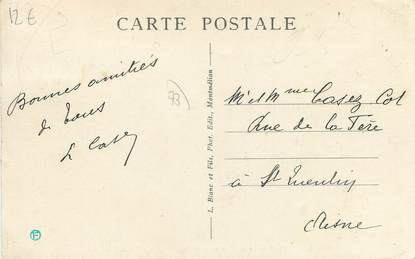 12€
CARTE POSTALE
Bonnes amitiés
de tous
L Casez
73
L. Blanc et Fils, Phot. Edit., Montmélian
Mr et Mme Casez Col
Rue de la Fère
à St Quentin
Aisne